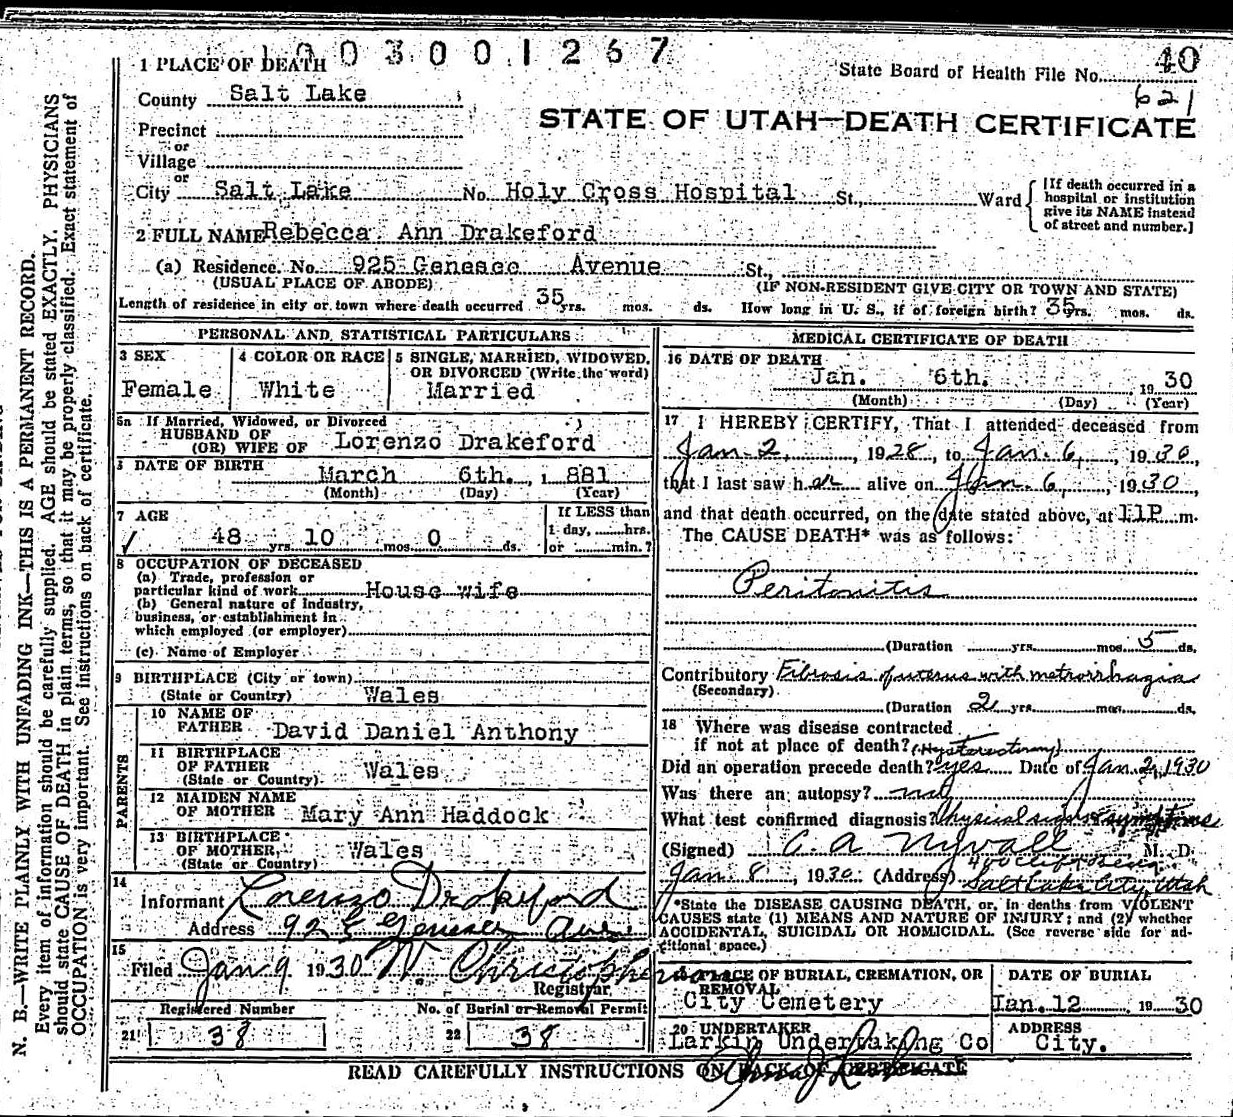 1003001267
40
1 PLACE OF DEATH
State Board of Health File No.
621
County Salt Lake
STATE OF UTAH—DEATH CERTIFICATE
Precinct
or
Village
or
City Salt Lake No. Holy Cross Hospital St., Ward
[If death occurred in a hospital or institution give its NAME instead of street and number.]
2 FULL NAME Rebecca Ann Drakeford
(a) Residence. No. 925 Genesee Avenue St.,
(USUAL PLACE OF ABODE) (IF NON-RESIDENT GIVE CITY OR TOWN AND STATE)
Length of residence in city or town where death occurred 35 yrs. mos. ds. How long in U. S., if of foreign birth? 35 yrs. mos. ds.
PERSONAL AND STATISTICAL PARTICULARS
3 SEX
Female
4 COLOR OR RACE
White
5 SINGLE, MARRIED, WIDOWED,
OR DIVORCED (Write the word)
Married
5a If Married, Widowed, or Divorced
HUSBAND OF
(OR) WIFE OF Lorenzo Drakeford
DATE OF BIRTH
March 6th. 1 881
(Month) (Day) (Year)
7 AGE
48 yrs. 10 mos. 0 ds.
If LESS than
1 day, hrs.
or min.?
8 OCCUPATION OF DECEASED
(a) Trade, profession or
particular kind of work House wife
(b) General nature of Industry,
business, or establishment in
which employed (or employer)
(c) Name of Employer
9 BIRTHPLACE (City or town)
(State or Country) Wales
PARENTS
10 NAME OF
FATHER David Daniel Anthony
11 BIRTHPLACE
OF FATHER
(State or Country) Wales
12 MAIDEN NAME
OF MOTHER Mary Ann Haddock
13 BIRTHPLACE
OF MOTHER
(State or Country) Wales
14
Informant Lorenzo Drakeford
Address 925 Genesee Ave
15
Filed Jan 9 1930
Registrar
Registered Number
21 38
No. of Burial or Removal Permit
22 38
MEDICAL CERTIFICATE OF DEATH
16 DATE OF DEATH
Jan. 6th. 19 30
(Month) (Day) (Year)
17 I HEREBY CERTIFY, That I attended deceased from
Jan. 2, 1928, to Jan. 6, 1930,
that I last saw her alive on Jan. 6, 1930,
and that death occurred, on the date stated above, at 11P m.
The CAUSE DEATH* was as follows:
Peritonitis
(Duration yrs. mos. 5 ds.
Contributory Fibrosis of uterus with metrorrhagia
(Secondary)
(Duration 2 yrs. mos. ds.
18 Where was disease contracted
if not at place of death? (Hysterectomy)
Did an operation precede death? yes Date of Jan. 2, 1930
Was there an autopsy? not
What test confirmed diagnosis? Physical signs & symptoms
(Signed) C. A. Nyvall M. D.
Jan. 8, 1930 (Address)
Salt Lake City, Utah
*State the DISEASE CAUSING DEATH, or, in deaths from VIOLENT
CAUSES state (1) MEANS AND NATURE OF INJURY; and (2) whether
ACCIDENTAL, SUICIDAL OR HOMICIDAL. (See reverse side for ad-
ditional space.)
PLACE OF BURIAL, CREMATION, OR
REMOVAL
City Cemetery
DATE OF BURIAL
Jan. 12 19 30
20 UNDERTAKER
Larkin Undertaking Co
ADDRESS
City.
READ CAREFULLY INSTRUCTIONS ON BACK OF CERTIFICATE
N. B.—WRITE PLAINLY WITH UNFADING INK—THIS IS A PERMANENT RECORD.
Every item of information should be carefully supplied. AGE should be stated EXACTLY. PHYSICIANS
should state CAUSE OF DEATH in plain terms, so that it may be properly classified. Exact statement of
OCCUPATION is very important. See instructions on back of certificate.